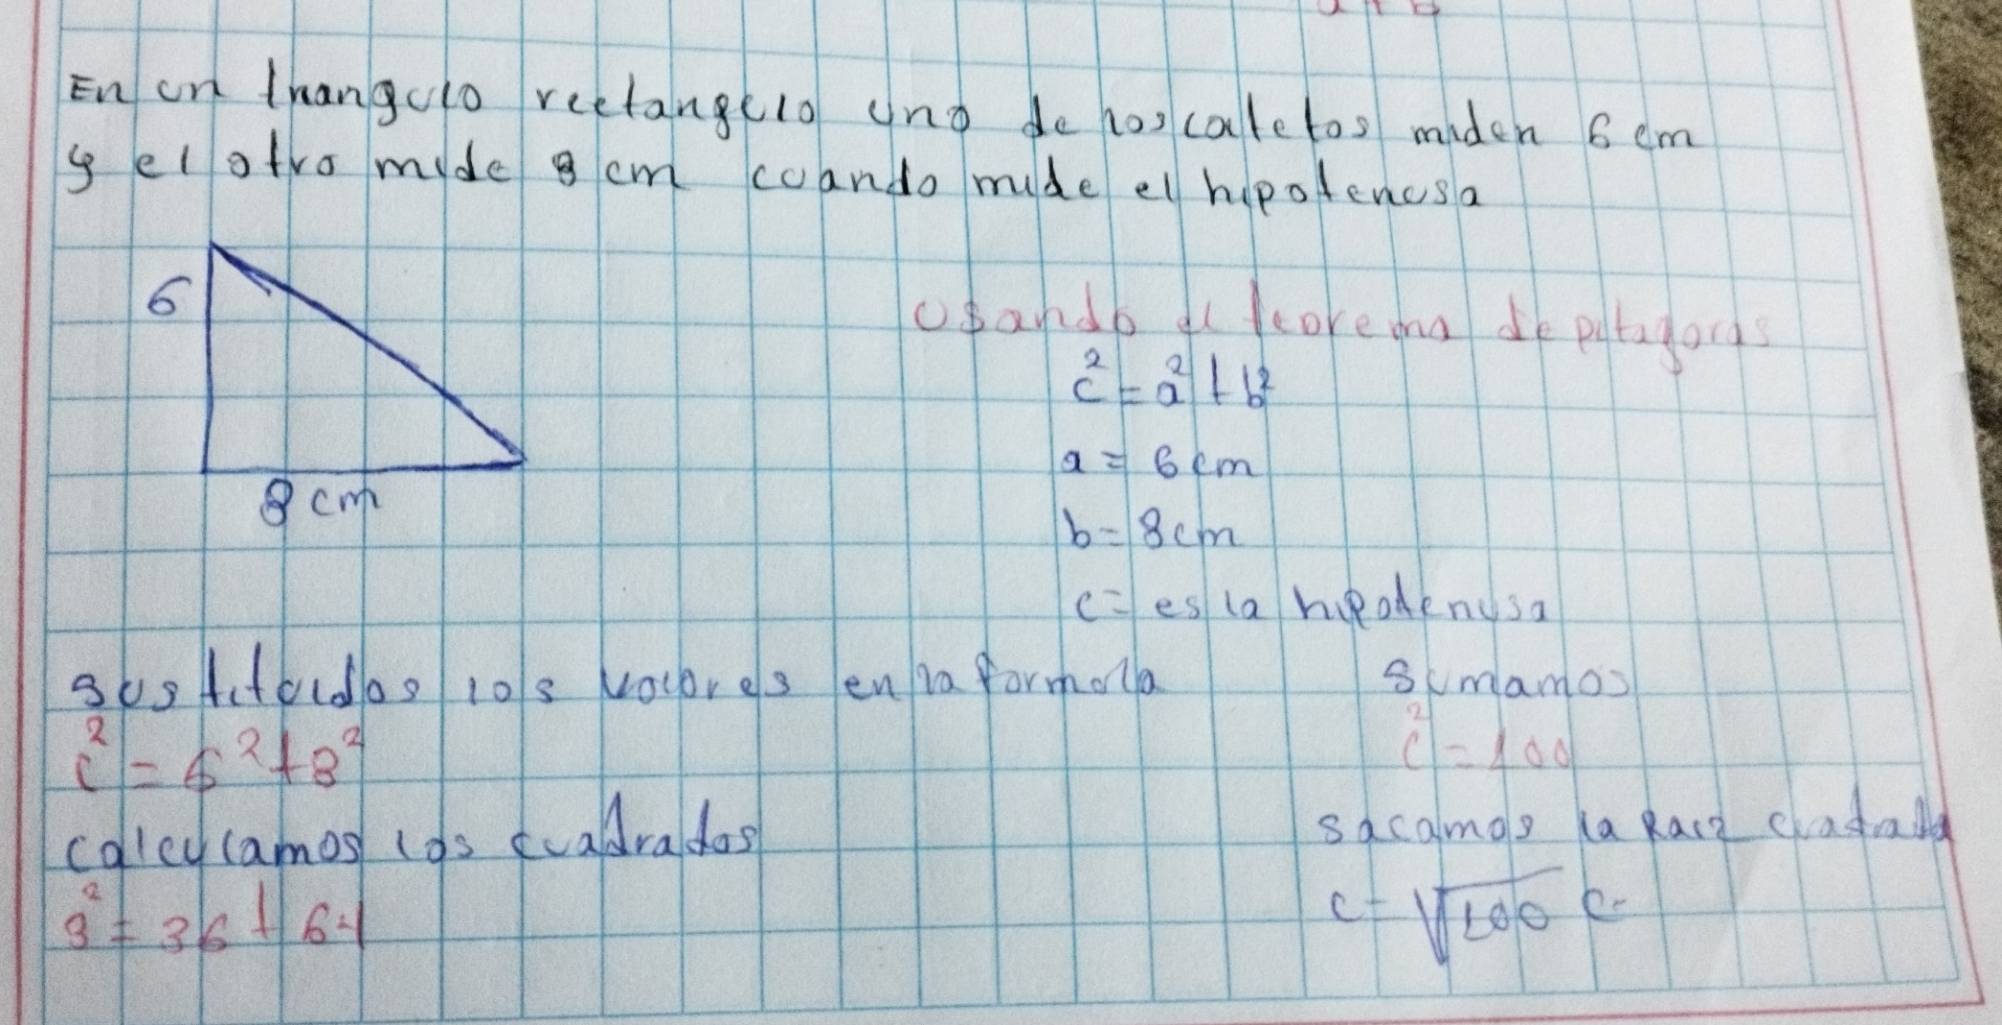 a + b
En un triangulo rectangulo uno de los catetos miden 6 cm
y el otro mide 8 cm cuando mide el hipotenusa
6
8 cm
Usando el teorema de pitagoras
c² = a² + b²
a = 6 cm
b = 8 cm
c = es la hipotenusa
sustituidos los valores en la formula
c² = 6² + 8²
calculamos los cuadrados
3² = 36 + 64
sumamos
c² = 100
sacamos la Raiz cuadrada
c = √100 c=